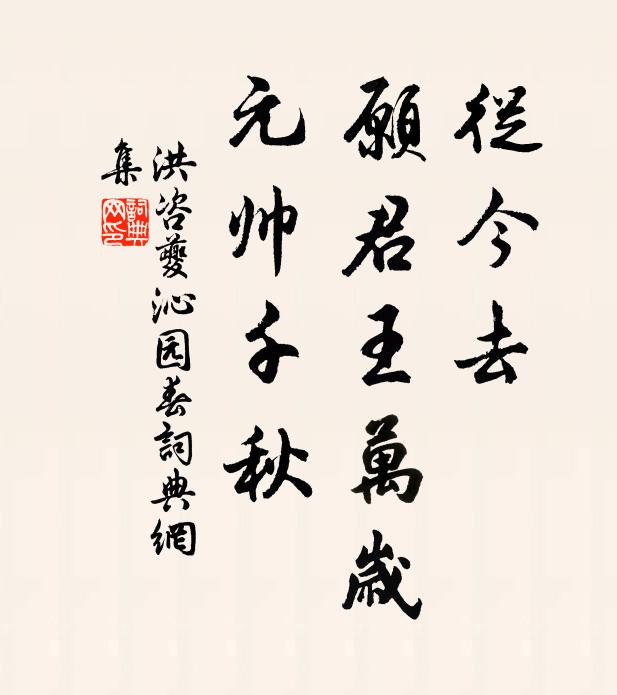 從今去
願君王萬歲
元帅千秋
洪咨夔沁园春詞典網
集
詞典网印